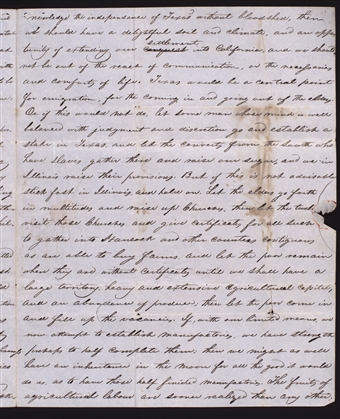 knowledge the independence of Texas without bloodshed, then
we should have a delightful soil and climate, and an oppor
tunity of extending our conquest settlement into California, and we should
not be out of the reach of communication or the necessaries
and comforts of life. Texas would be a central point
for emigration, for the coming in and going out of the
Or if this would not do, let some man whose mind is well
balanced with judgment and discretion go and establish a
stake in Texas, and let the converts from the South who
have slaves gather there and raise our sugar, and we in
Illinois raise their provisions. But if this is not advisable
stick fast in Illinois, and hold on. Let the elders go forth
in multitudes and raise up Churches, then let the
visit those Churches and give certificates for all such
to gather into Hancock and other counties contiguous
as are able to buy farms, and let the poor remain
where they are without certificates, until we shall have a
large territory, heavy and extensive agricultural capital,
and an abundance of produce, then let the poor come in
and fill up the vacancies. If, with our limited means, we
now attempt to establish manufactories, we have strength
perhaps to half complete them, then we might as well
have an inheritance in the moon for all the good it would
do us, as to have those half finished manufactories. The fruits of
agricultural labour are sooner realized than any other,